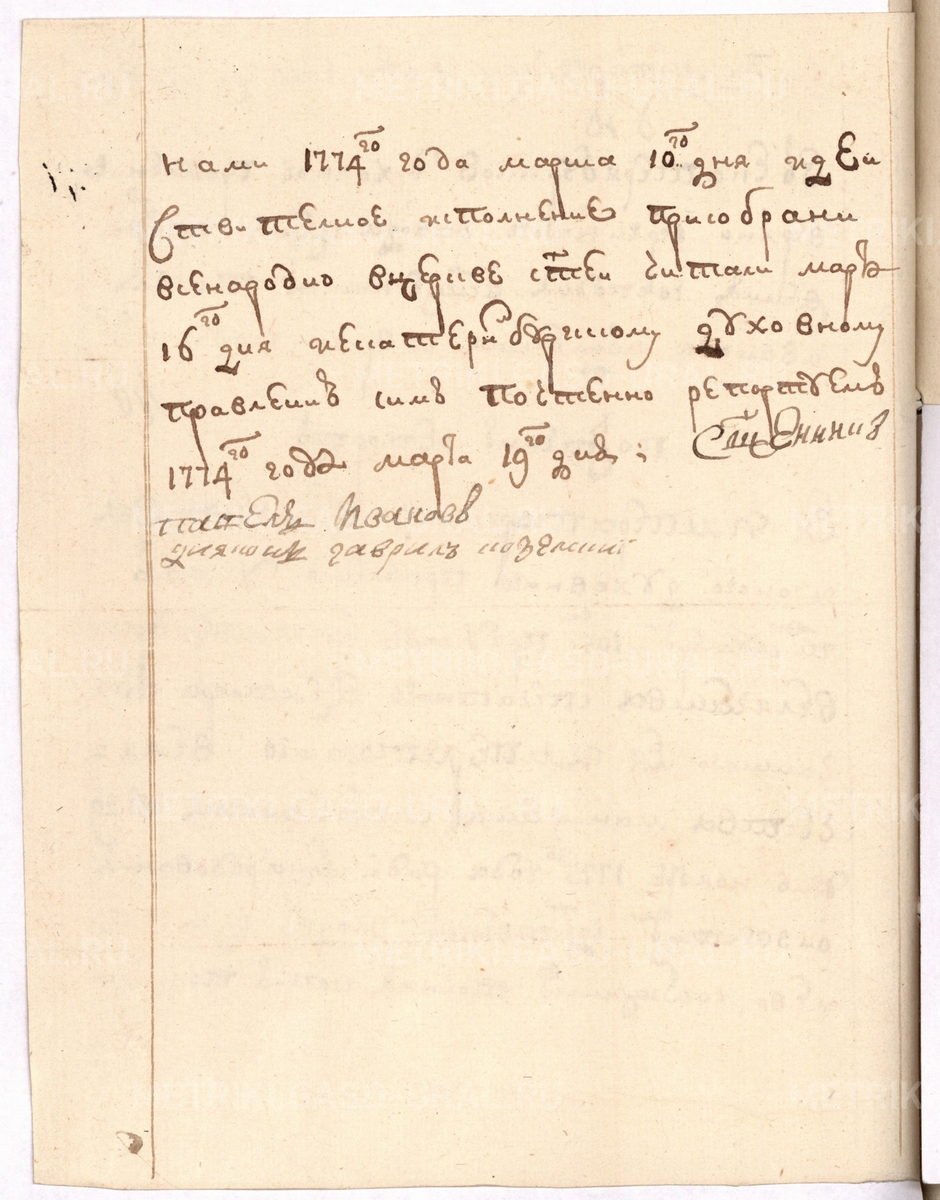 нами 1774го года марта 10го дня идеи
ствителное исполнение присобрани
всенародно вцеркве стеи читали марта
16го дня иекатеринбургскому духовному
правлению симъ почтенно репортуемъ
1774го года марта 19го дня: Сщенникъ
пантелей Ивановъ
диякон гаврилъ